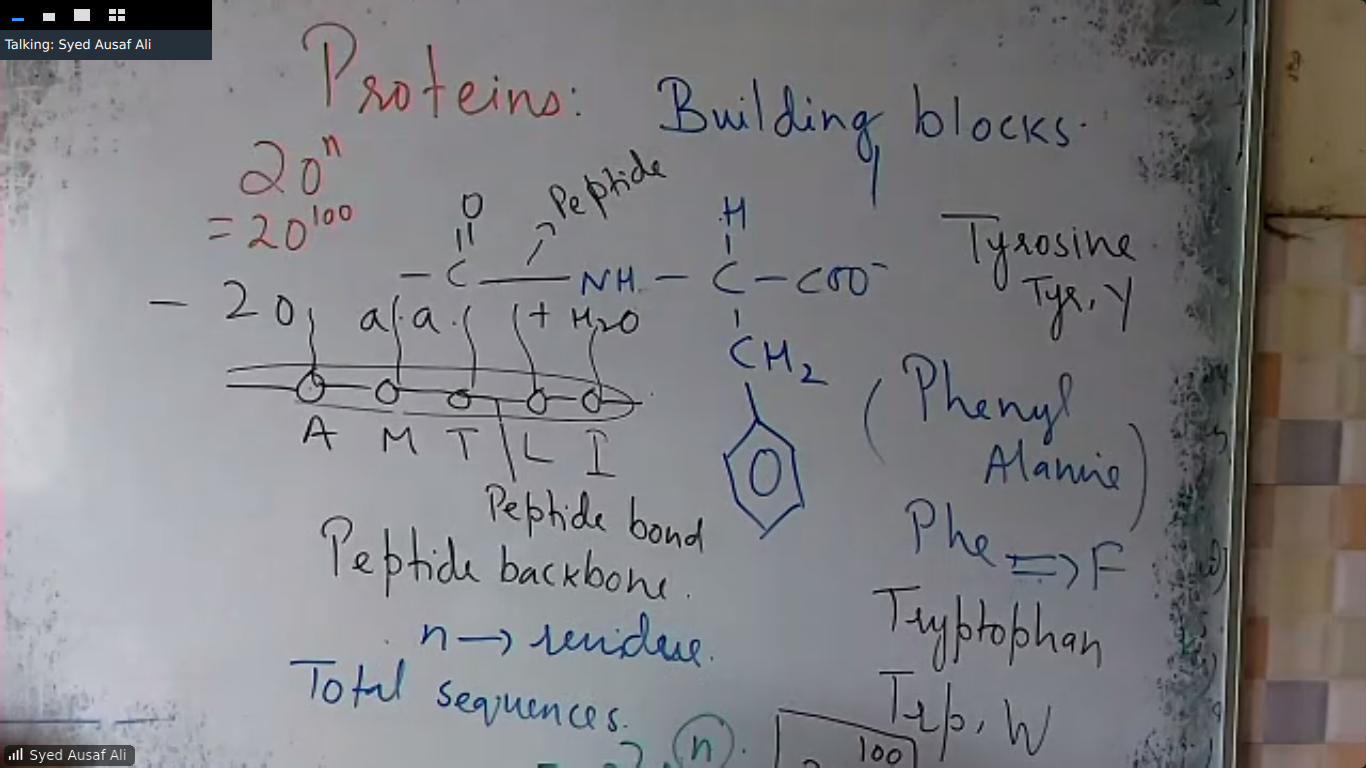 Talking: Syed Ausaf Ali
Proteins: Building blocks.
20ⁿ
= 20¹⁰⁰
Peptide
O
H
— C — NH — C — COO⁻
CH₂
Tyrosine
Tyr, Y
— 20 a.a. + H₂O
A M T L I
Peptide bond
Peptide backbone.
n → residue.
Total sequences.
(Phenyl
Alanine)
Phe ⇒ F
Tryptophan
Trp, W
n
100
Syed Ausaf Ali